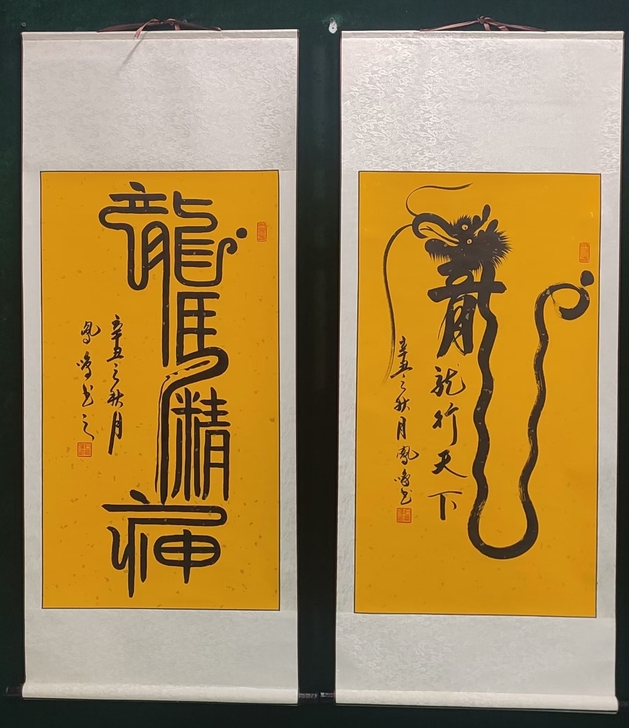 龍馬精神
辛丑之秋月
鳳鳴書之
龍
龍行天下
辛丑之秋月鳳鳴書